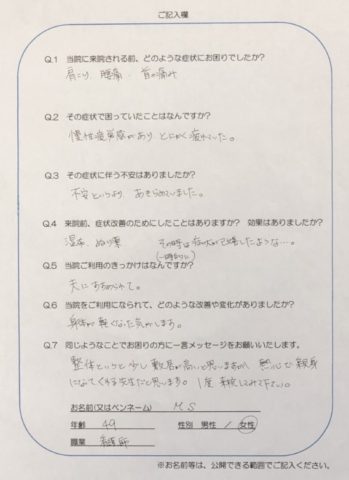 ご記入欄
Q.1 当院に来院される前、どのような症状にお困りでしたか?
肩こり 腰痛 首の痛み
Q.2 その症状で困っていたことはなんですか?
慢性疲労感があり とにかく疲れていた。
Q.3 その症状に伴う不安はありましたか?
不安というより、あきらめていました。
Q.4 来院前、症状改善のためにしたことはありますか? 効果はありましたか?
湿布、ぬり薬 その時は症状が
(一時的に)
Q.5 当院ご利用のきっかけはなんですか?
夫にすすめられて。
Q.6 当院をご利用になられて、どのような改善や変化がありましたか?
身体が軽くなった気がします。
Q.7 同じようなことでお困りの方に一言メッセージをお願いいたします。
整体というと少し敷居が高いと思いますが、熱心で親身
になってくれる先生だと思います。1度 来院してみて下さい。
お名前(又はペンネーム) M S
年齢 49 性別 男性 / 女性
職業 看護師
※お名前等は、公開できる範囲でご記入ください。